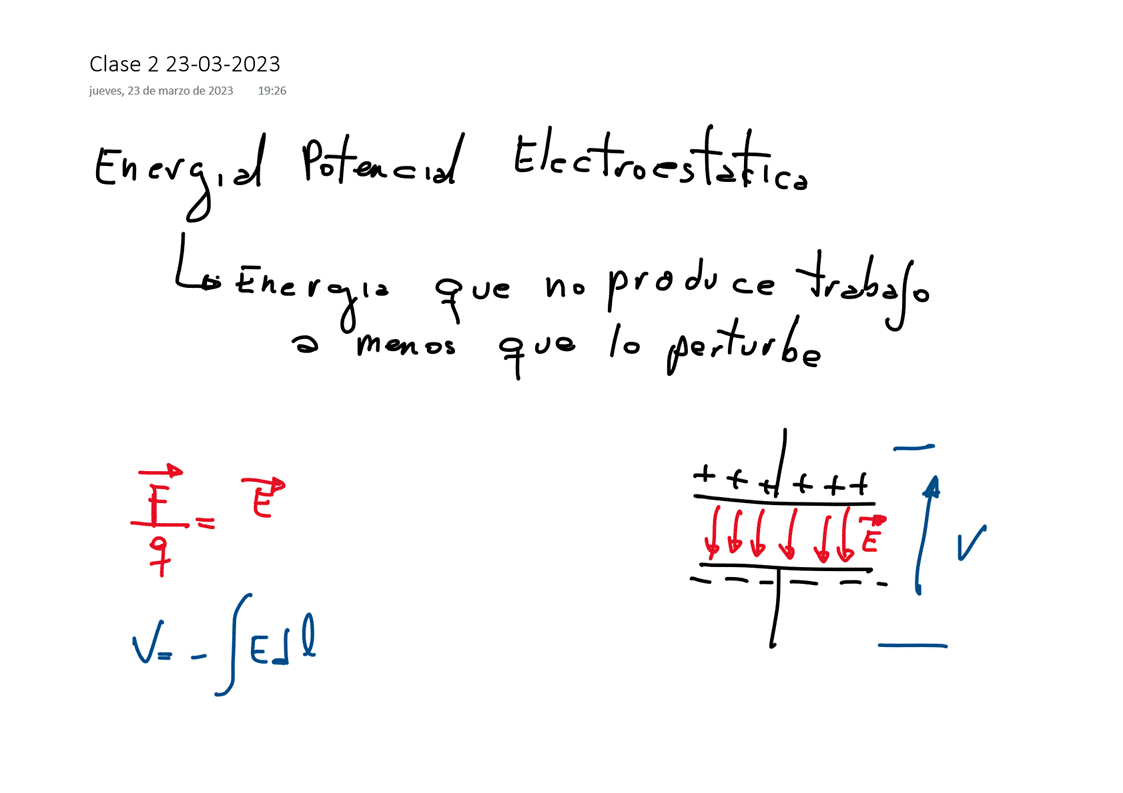 Clase 2 23-03-2023
jueves, 23 de marzo de 2023 19:26
Energial Potencial Electroestatica
Energia que no produce trabajo
a menos que lo perturbe
+ + + + + +
F/q = E
E
V
- - - - - -
V = - ∫ E d l